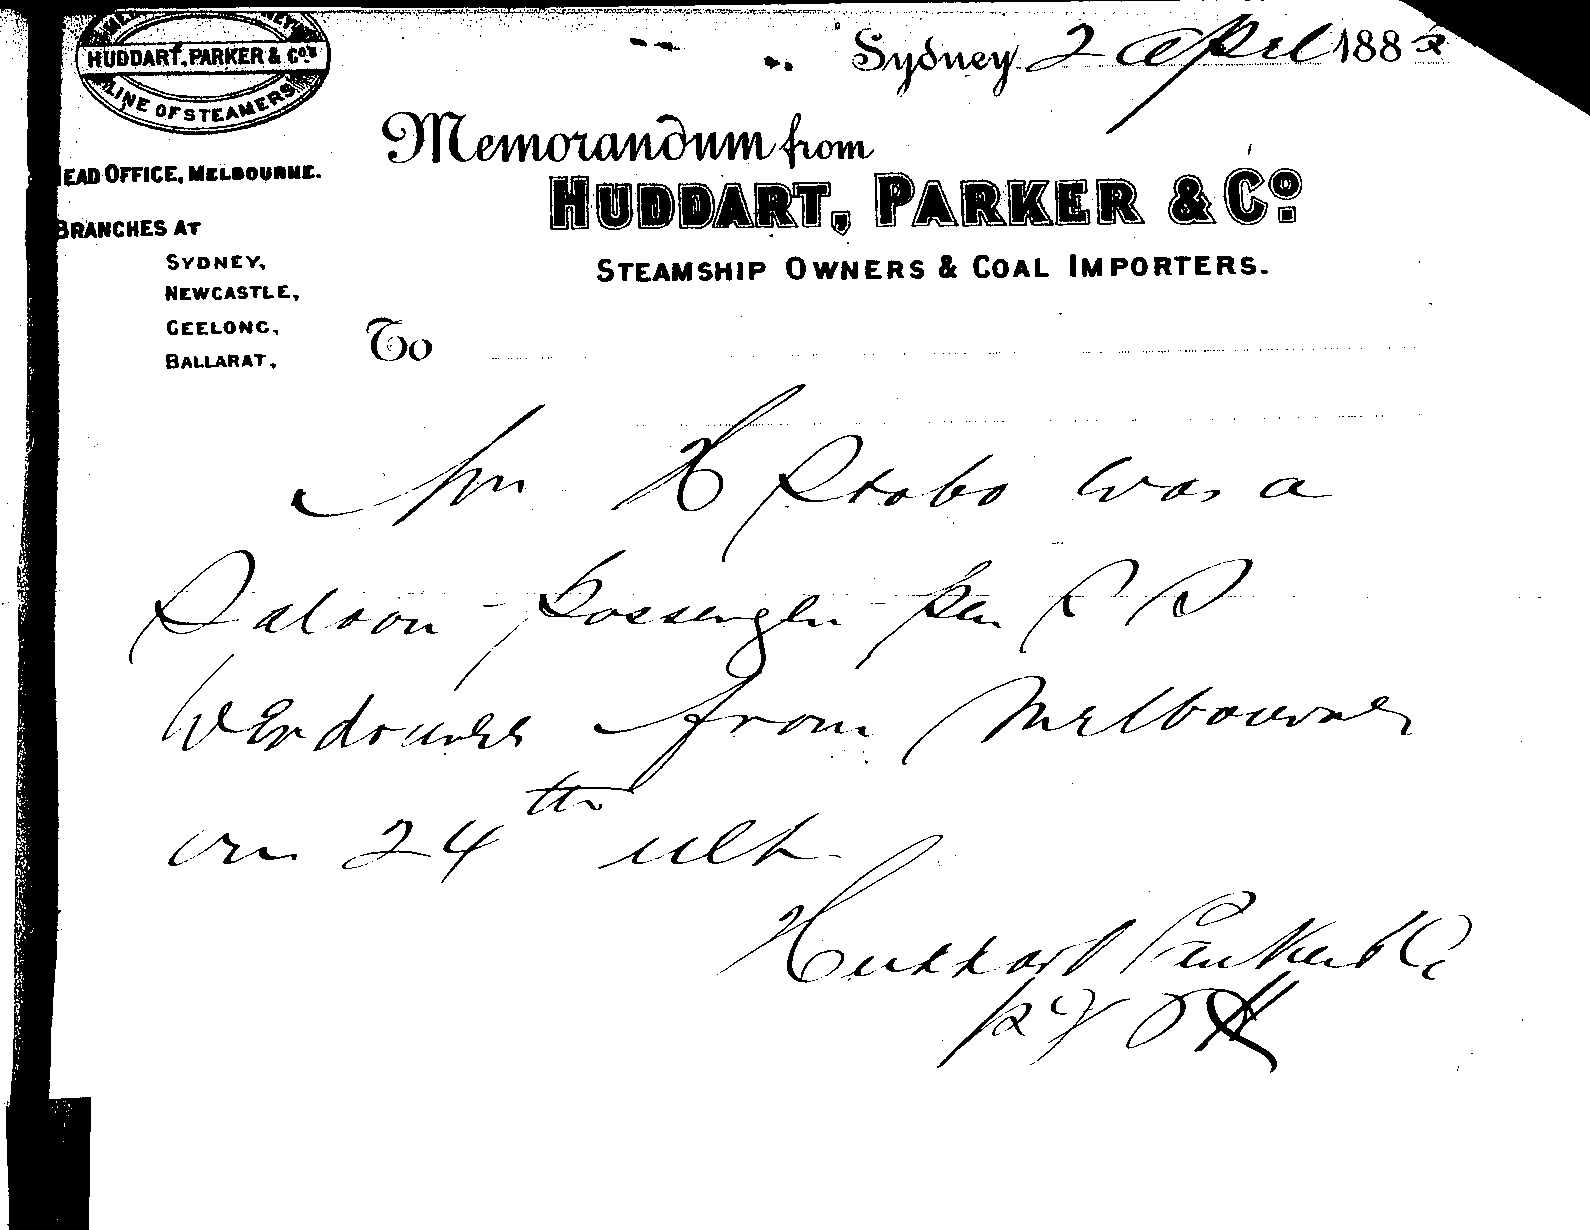 HUDDART, PARKER & Co's
LINE OF STEAMERS
Sydney 2 April 1882
Memorandum from
HUDDART, PARKER & Co.
STEAMSHIP OWNERS & COAL IMPORTERS.
EAD OFFICE, MELBOURNE.
BRANCHES AT
SYDNEY,
NEWCASTLE,
GEELONG,
BALLARAT.
To
Mr H Stobo was a
Saloon passenger per S S
Wendouree from Melbourne
on 24th ult
Huddart Parker & Co